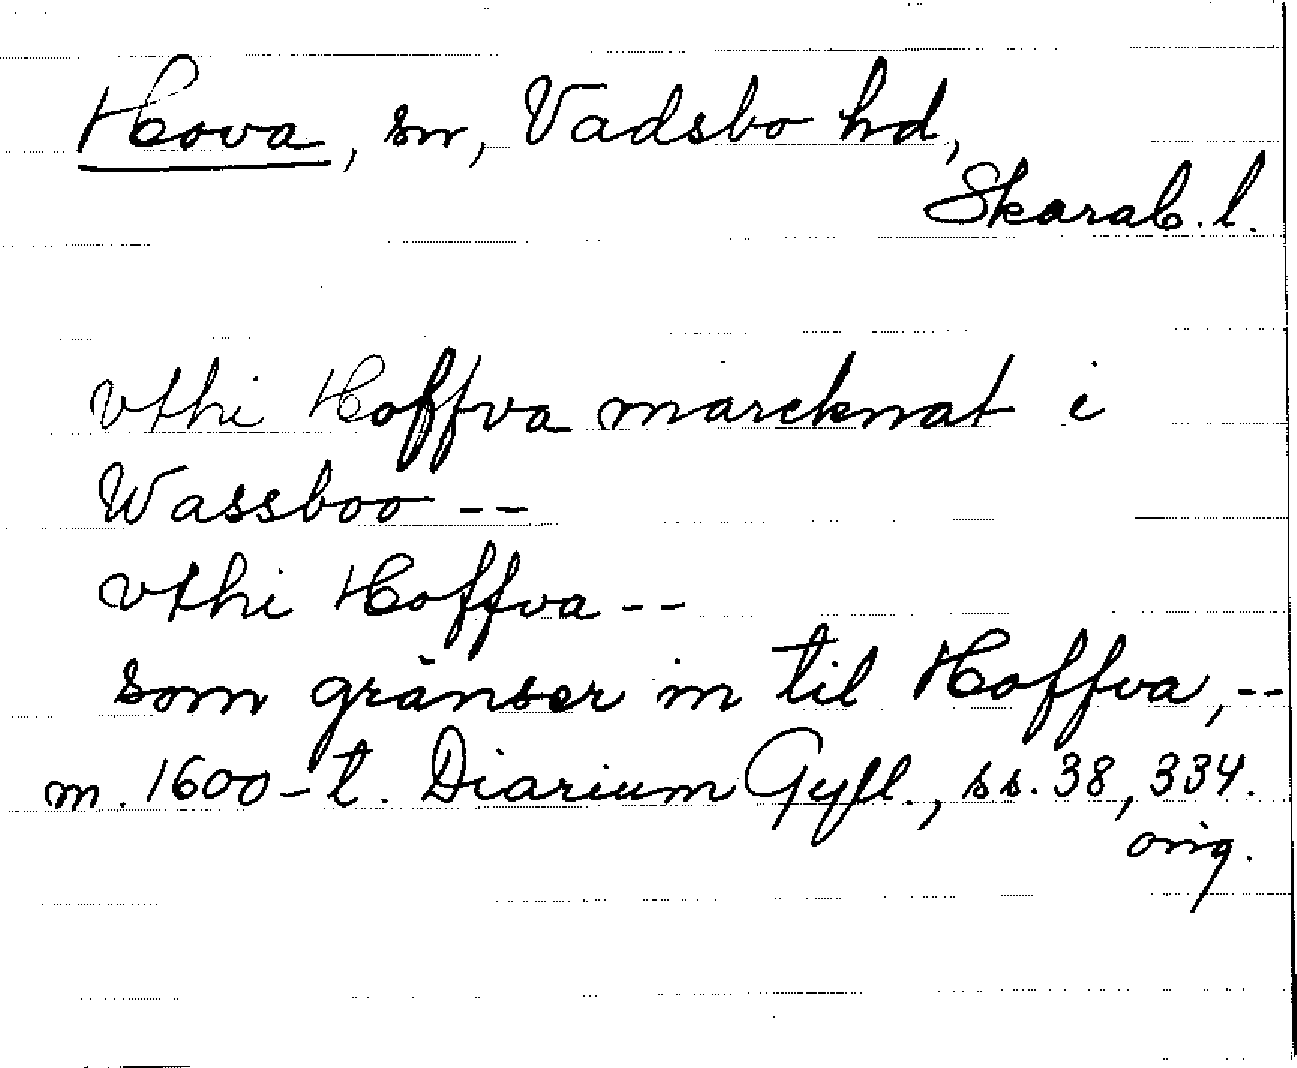 Hova, sn, Vadsbo hd,
Skarab. l.
vthi Hoffva marcknat i
Wassboo --
vthi Hoffva --
som gränser in til Hoffva, --
m. 1600-t. Diarium Gyll., ss. 38, 334.
orig.